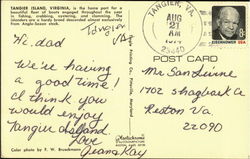 TANGIER ISLAND, VIRGINIA, is the home port for a
beautiful fleet of boats engaged throughout the year
in fishing, crabbing, oystering, and clamming. The
islanders are a hardy breed descended almost exclusively
from Anglo-Saxon stock.
Tangier
VA
Hi, dad
We're having
a good time!
I think you
would enjoy
Tangier Island
Love
Color photo by F. W. Brueckmann
TANGIER, VA.
AUG
21
AM
23440
EISENHOWER USA
8c
POST CARD
1702
Reston Va.
22090